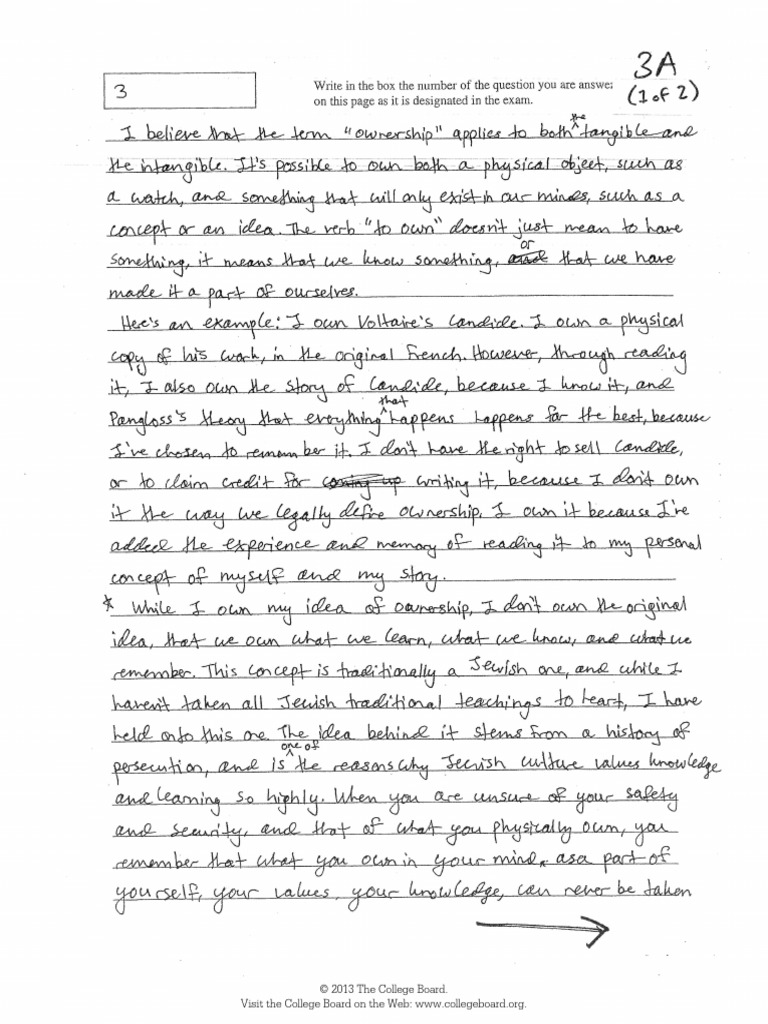 3A
3
Write in the box the number of the question you are answe
(1 of 2)
on this page as it is designated in the exam.
I believe that the term "ownership" applies to both the tangible and
the intangible. It's possible to own both a physical object, such as
a watch, and something that will only exist in our minds, such as a
concept or an idea. The verb "to own" doesn't just mean to have
something, it means that we know something, or that we have
made it a part of ourselves.
Here's an example: I own Voltaire's Candide. I own a physical
copy of his work, in the original French. However, through reading
it, I also own the story of Candide, because I know it, and
Pangloss's theory that everything that happens happens for the best, because
I've chosen to remember it. I don't have the right to sell Candide,
or to claim credit for coming up writing it, because I don't own
it the way we legally define ownership. I own it because I've
added the experience and memory of reading it to my personal
concept of myself and my story.
* While I own my idea of ownership, I don't own the original
idea, that we own what we learn, what we know, and what we
remember. This concept is traditionally a Jewish one, and while I
haven't taken all Jewish traditional teachings to heart, I have
held onto this one. The idea behind it stems from a history of
persecution, and is one of the reasons why Jewish culture values knowledge
and learning so highly. When you are unsure of your safety
and security, and that of what you physically own, you
remember that what you own in your mind, as a part of
yourself, your values, your knowledge, can never be taken
© 2013 The College Board.
Visit the College Board on the Web: www.collegeboard.org.